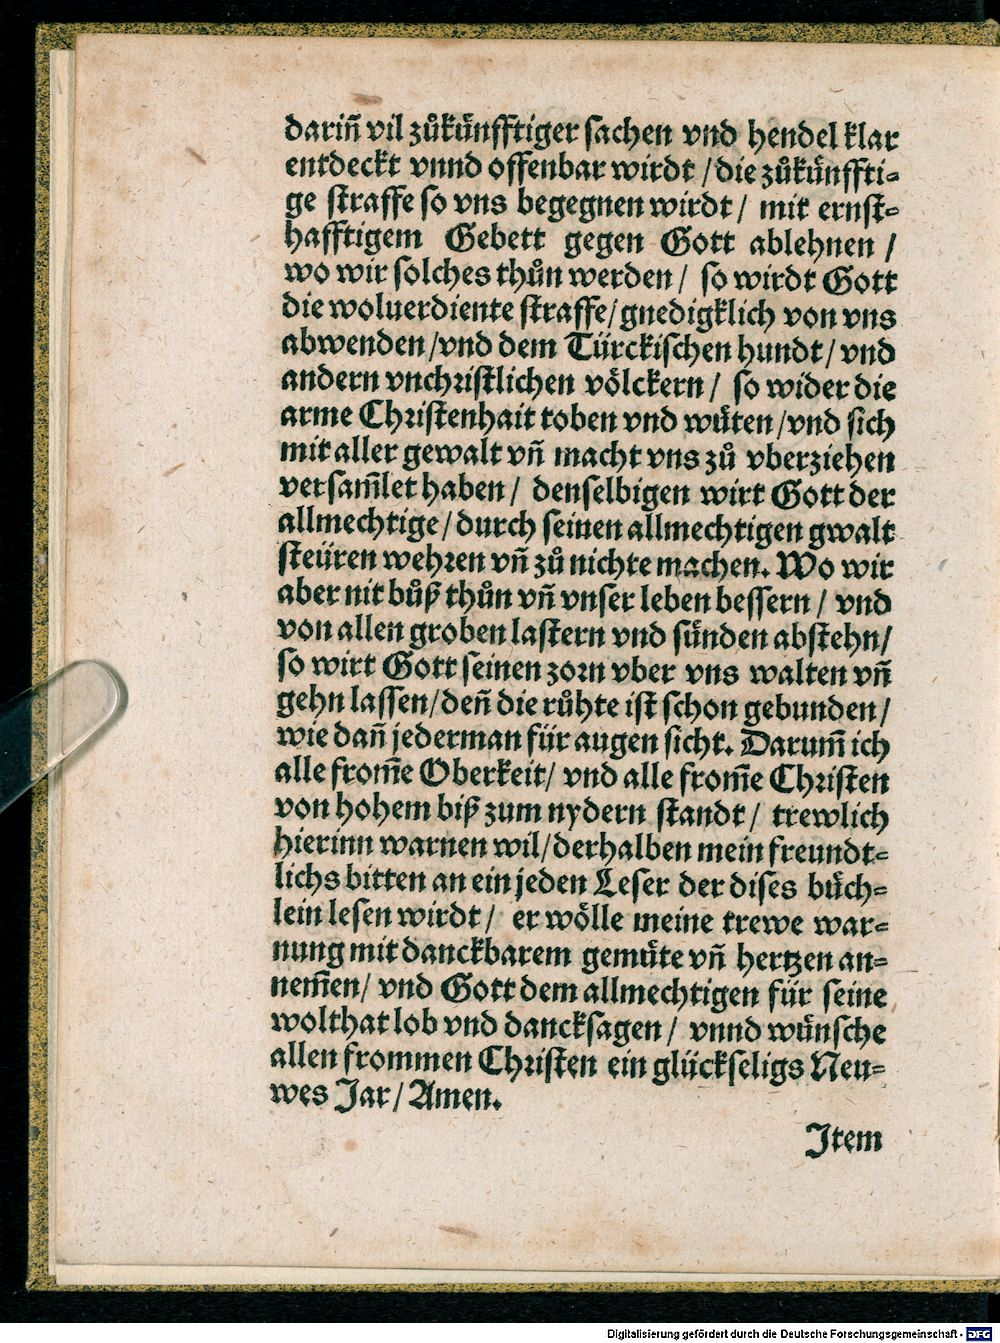 dariñ vil zůkünfftiger sachen vnd hendel klar
entdeckt vnnd offenbar wirdt / die zůkünffti-
ge straffe so vns begegnen wirdt / mit ernst-
hafftigem Gebett gegen Gott ablehnen /
wo wir solches thůn werden / so wirdt Gott
die woluerdiente straffe / gnedigklich von vns
abwenden / vnd dem Türckischen hundt / vnd
andern vnchristlichen völckern / so wider die
arme Christenhait toben vnd wüten / vnd sich
mit aller gewalt vñ macht vns zů vberziehen
versam̃let haben / denselbigen wirt Gott der
allmechtige / durch seinen allmechtigen gwalt
steüren wehren vñ zů nichte machen. Wo wir
aber nit bůß thůn vñ vnser leben bessern / vnd
von allen groben lastern vnd sünden abstehn /
so wirt Gott seinen zorn vber vns walten vñ
gehn lassen / deñ die růhte ist schon gebunden /
wie dañ jederman für augen sicht. Darum̃ ich
alle from̃e Oberkeit / vnd alle from̃e Christen
von hohem biß zum nydern standt / trewlich
hierinn warnen wil / derhalben mein freundt-
lichs bitten an ein jeden Leser der dises büch-
lein lesen wirdt / er wölle meine trewe war-
nung mit danckbarem gemüte vñ hertzen an-
nem̃en / vnd Gott dem allmechtigen für seine
wolthat lob vnd dancksagen / vnnd wünsche
allen frommen Christen ein glückseligs Neu-
wes Jar / Amen.
Item
Digitalisierung gefördert durch die Deutsche Forschungsgemeinschaft - DFG